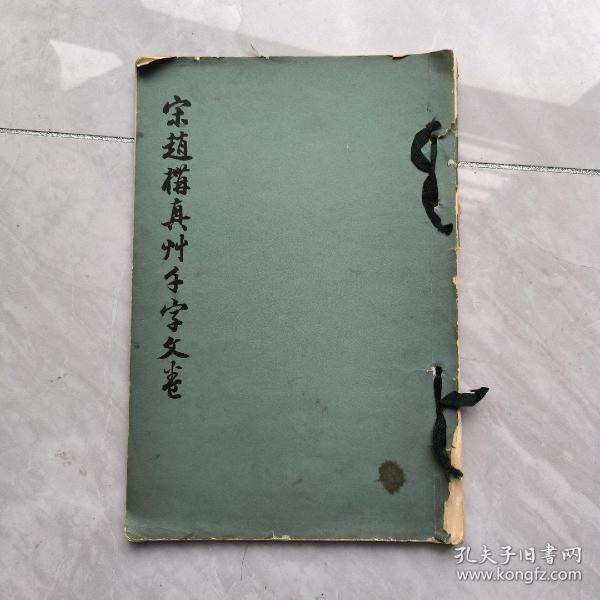 宋趙構真艸千字文卷
孔夫子旧书网
www.kongfz.com